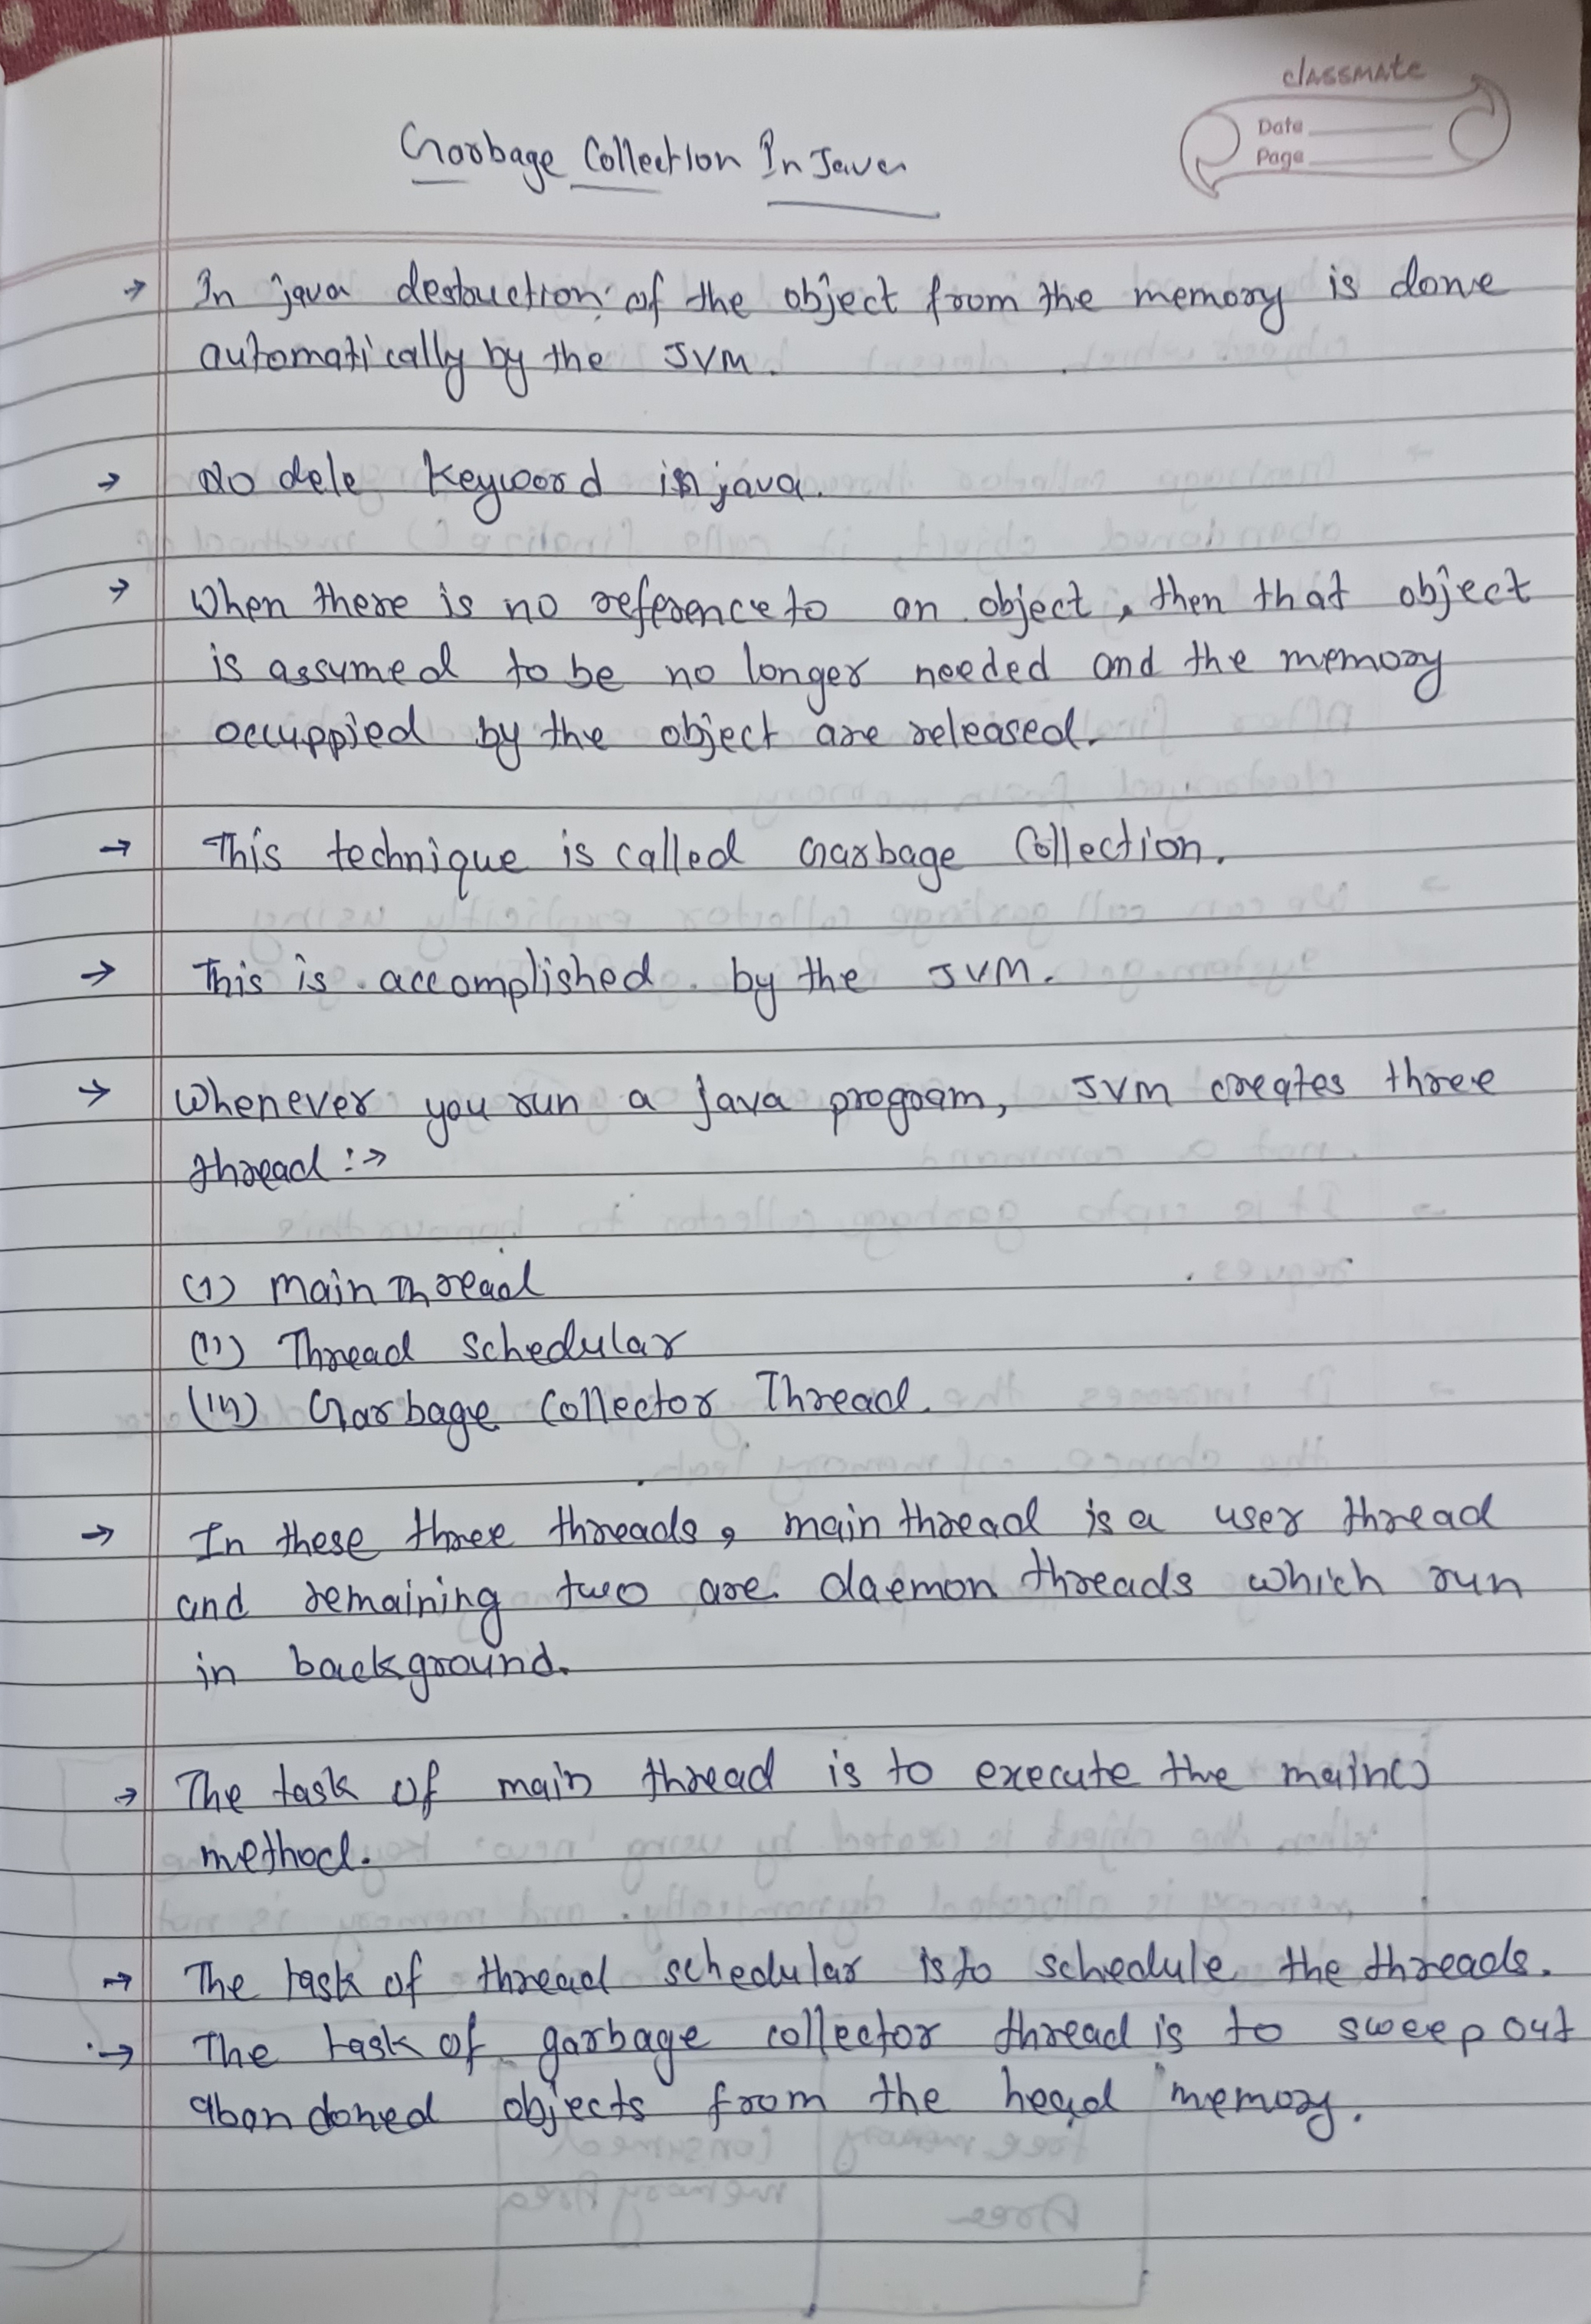 classmate
Date
Page
Garbage Collection In Java
→ In java destruction of the object from the memory is done
automatically by the JVM.
→ No dele keyword in java.
→ When there is no reference to an object, then that object
is assumed to be no longer needed and the memory
occuppied by the object are released.
→ This technique is called Garbage Collection.
→ This is accomplished by the JVM.
→ Whenever you run a java program, JVM creates three
thread :→
(i) Main Thread
(ii) Thread Schedular
(iii) Garbage Collector Thread.
→ In these three threads, main thread is a user thread
and remaining two are daemon threads which run
in background.
→ The task of main thread is to execute the main()
method.
→ The task of thread schedular is to schedule the threads.
→ The task of garbage collector thread is to sweep out
abandoned objects from the head memory.